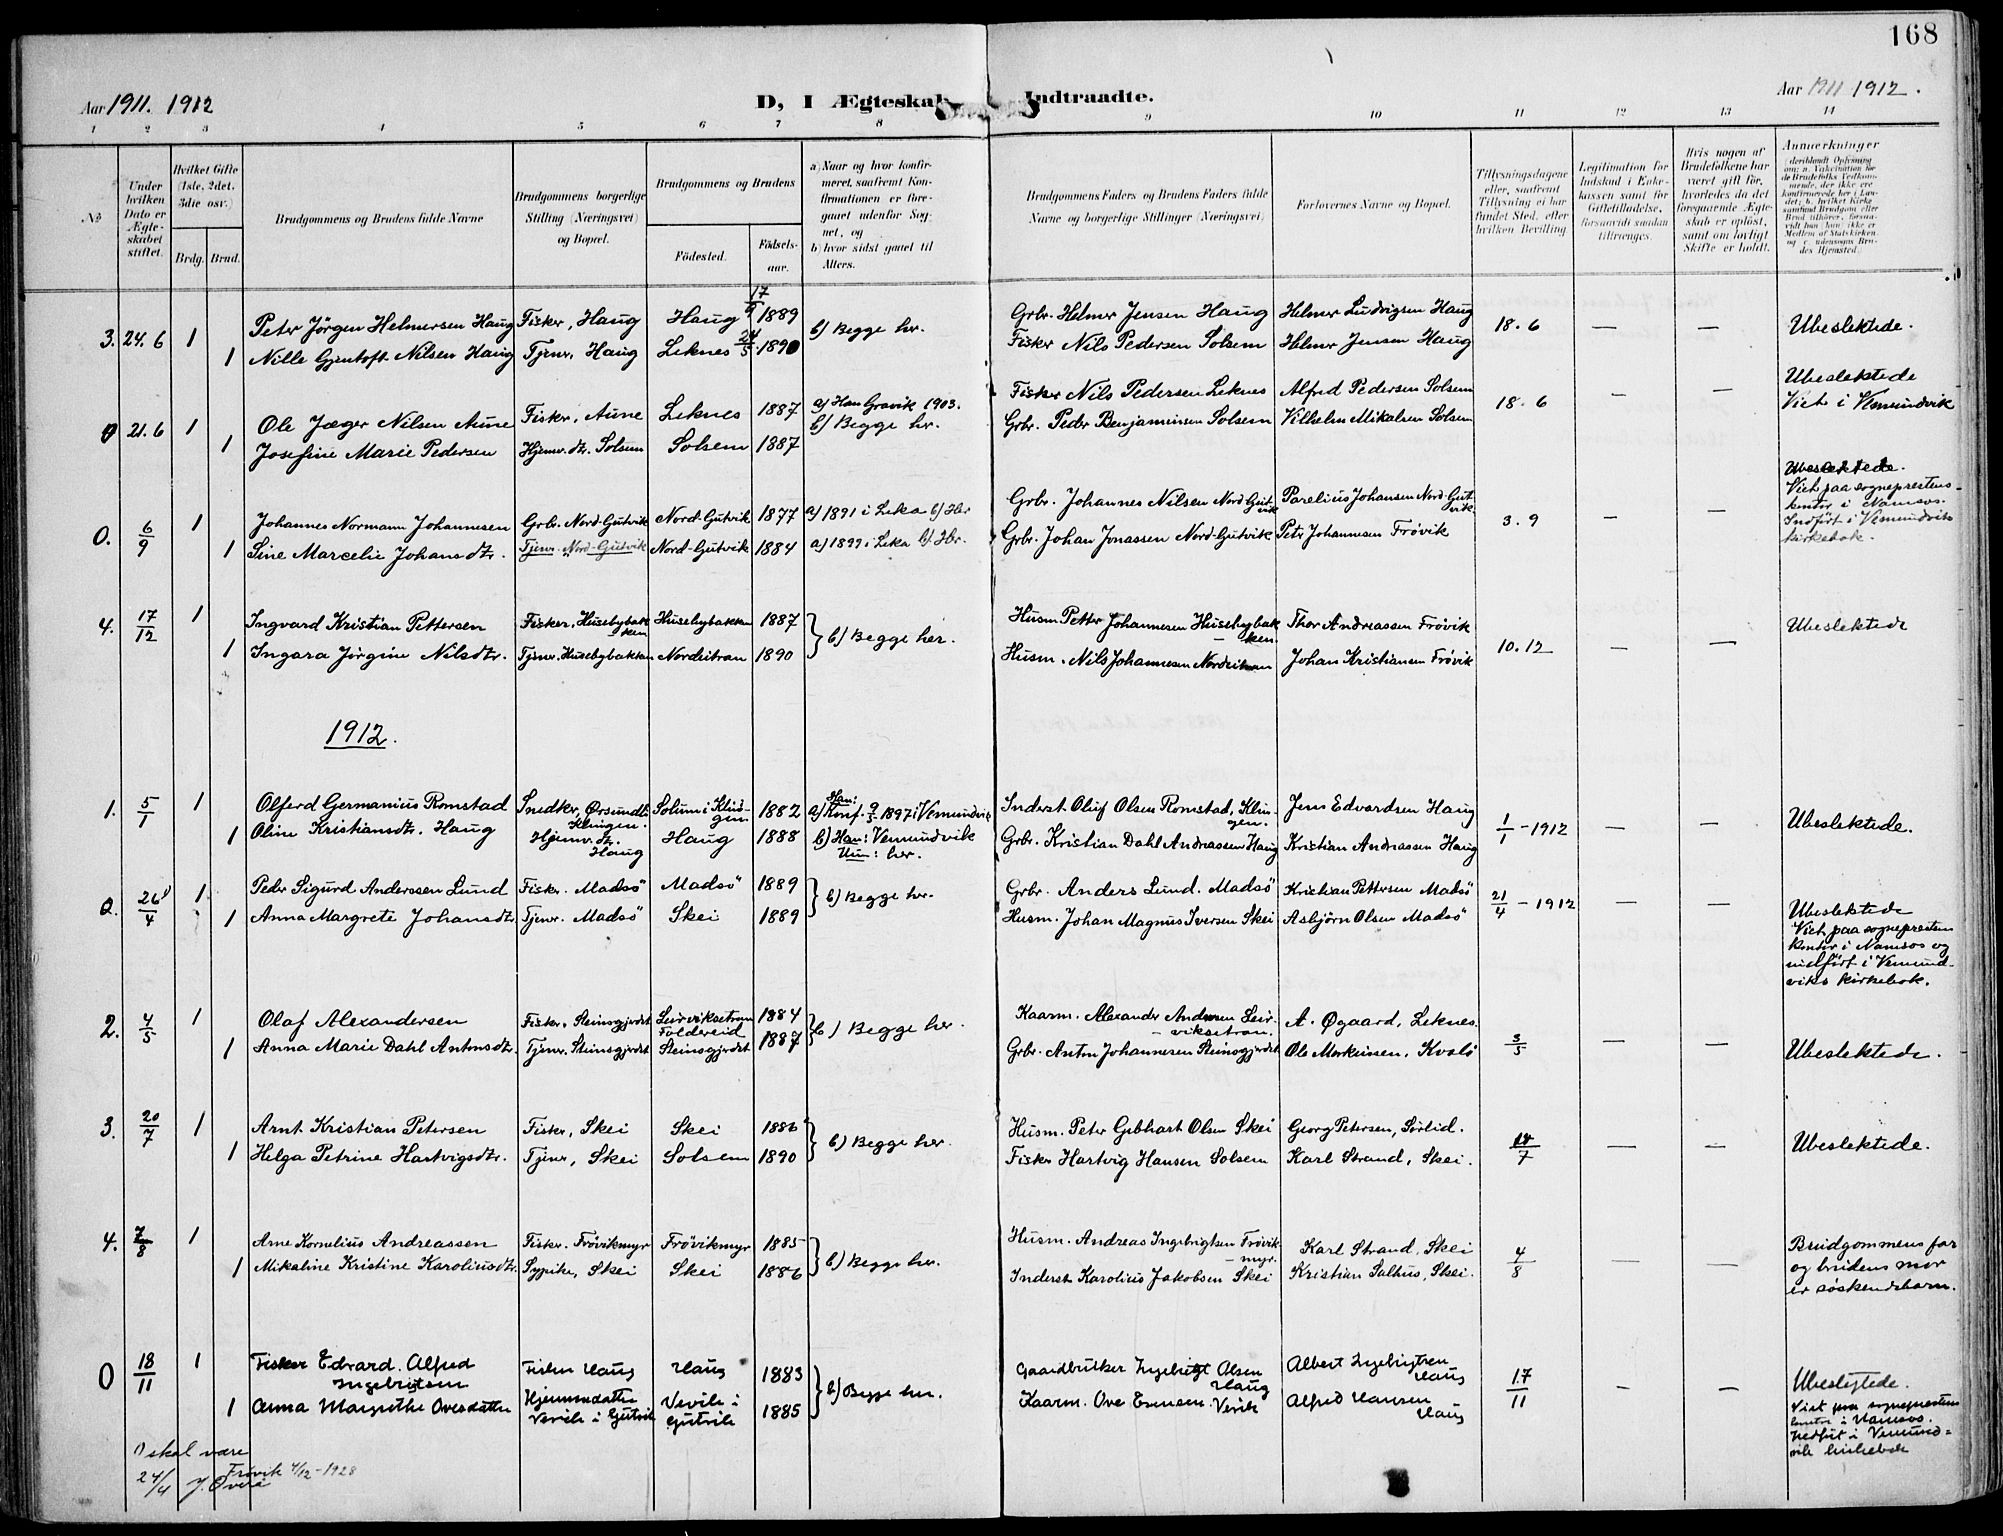 168
Aar 1911. 1912
D, I Ægteskab Indtraadte.
Aar 1911 1912.
1 2 3 4 5 6 7 8 9 10 11 12 13 14
№
Under hvilken Dato er Ægteskabet stiftet.
Hvilket Gifte (1ste, 2det, 3die osv.)
Brdg. Brud.
Brudgommens og Brudens fulde Navne
Brudgommens borgerlige Stilling (Næringsvei) og Bopæl.
Brudgommens og Brudens
Födested.
Födselsaar.
a) Naar og hvor konfirmeret, saafremt Konfirmationen er foregaaet udenfor Sognet, og
b) hvor sidst gaaet til Alters.
Brudgommens Faders og Brudens Faders fulde Navne og borgerlige Stillinger (Næringsvei)
Forlovernes Navne og Bopæl.
Tillysningsdagene eller, saafremt Tillysning ei har fundet Sted, efter hvilken Bevilling
Legitimation for Indskud i Enkekassen samt for Giftetilladelse, forsaavidt saadan tiltrænges.
Hvis nogen af Brudefolkene har været gift för, hvorledes da det foregaaende Ægteskab er oplöst, samt om lovligt Skifte er holdt.
Anmerkninger
3. 24.6 1 Peter Jörgen Helmersen Haug Fisker, Haug Haug 17/9 1889 b) Begge her. Grbr. Helmer Jensen Haug Helmer Ludvigsen Haug 18.6 — — Ubeslektede.
1 Nille Gjentoft Nilsen Haug Tjener, Haug Leknes 24/5 1890 Fisker Nils Pedersen Solsem Helmer Jensen Haug
0 21.6 1 Ole Jæger Nilsen Aune Fisker, Aune Leknes 1887 a) Han Gravik 1903. b) Begge her. Fisker Nils Pedersen Leknes Alfred Pedersen Solsem 18.6 — — Ubeslektede Viet i Vemundvik
1 Josefine Marie Pedersen Hjemv. dtr. Solsem Solsem 1887 Grbr. Peder Benjaminsen Solsem Vilhelm Mikalsen Solsem
0. 6/9 1 Johannes Normann Johannesen Grbr. Nord-Gutvik Nord-Gutvik 1877 a) 1891 i Leka b) Her Grbr. Johannes Nilsen Nord-Gutvik Parelius Johansen Nord-Gutvik 3.9 — — Ubeslektede. Viet paa sogneprestens kontor i Namsos. Indført i Vemundviks kirkebok.
1 Sine Marcelie Johansdtr. Tjener. Nord-Gutvik Nord-Gutvik 1884 a) 1899 i Leka b) Her. Grbr. Johan Jonassen Nord-Gutvik Peter Johannesen Frövik
4. 17/12 1 Ingvard Kristian Pettersen Fisker, Husebybakken Husebybakken 1887 b) Begge her. Husm. Petter Johannesen Husebybakken Thor Andreassen Frövik 10.12 — — Ubeslektede
1 Ingara Jörgine Nilsdtr. Tjener. Husebybakken 1890 Husm. Nils Johannesen Johan Kristiansen Frövik
1912.
1. 5/1 1 Olferd Germanius Romstad Snedker, Klingen. Solum i Klingen 1882 a) Han: Konf. 1897 i Vemundvik Inderst Oluf Olsen Romstad, Klingen. Jens Edvardsen Haug 1/1 - 1912 — — Ubeslektede.
1 Oline Kristiansdtr. Haug Hjemv. dtr. Haug Haug 1888 b) Han: Vemundvik Hun: her. Grbr. Kristian Dahl Andreassen Haug Kristian Andreassen Haug
0. 26/4 1) 1 Peder Sigurd Anderssen Lund Fisker. Madsö Madsö 1889 b) Begge her. Grbr. Anders Lund. Madsö Kristian Pettersen Madsö 21/4 - 1912 — — Ubeslektede Viet paa sogneprestens kontor i Namsos og indført i Vemundviks kirkebok.
1 Anna Margrete Johansdtr Tjener. Madsö Skei 1889 Husm. Johan Magnus Iversen Skei Asbjörn Olsen Madsö
2. 4/5 1 Olaf Alexandersen Fisker, Steinsgjerdet Leirviksetran Foldereid 1884 b) Begge her. Kaarm. Alexander Andersen Leirviksetran. A. Øgaard, Leknes. 3/5 — — Ubeslektede.
1 Anna Marie Dahl Antonsdtr. Tjener. Steinsgjerdet Steinsgjerdet 1887 Grbr. Anton Johannesen Steinsgjerdet Ole Kvalö
3. 20/7 1 Arnt Kristian Petersen Fisker, Skei Skei 1886 b) Begge her. Husm. Peter Gebhart Olsen Skei Georg Petersen, Sörlid. /7 — — Ubeslektede.
1 Helga Petrine Hartvigsdtr. Tjener, Skei Solsem 1890 Fisker Hartvig Hansen Solsem Karl Strand, Skei.
4. 7/8 1 Arne Kornelius Andreassen Fisker. Frövikmyr Frövikmyr 1885 b) Begge her. Husm. Andreas Ingebrigtsen Frövikmyr. Karl Strand, Skei 4/8 — — Brudgommens far og brudens mor er søskendebarn.
1 Mikaline Kristine Karoliusdtr. Sypike, Skei Skei 1886 Inderst Karolius Jakobsen Skei Kristian Salhus, Skei.
0 18/11 1 Fisker Edvard Alfred Ingebrigtsen Fisker Haug Haug 1883 b) Begge her. Gaardbruker Ingebrigt Olsen Haug Albert Ingebrigtsen Haug 17/11 — — Ubeslegtede. Viet paa sogneprestens kontor i Namsos. Vemundvik kirkebok
1 Anna Margrethe Ovesdatter Hjemmedatter i Gutvik i Gutvik 1885 Kaarm. Ove Alfred Hansen Haug
1) skal være 24/4 Frövik 4/12-1928